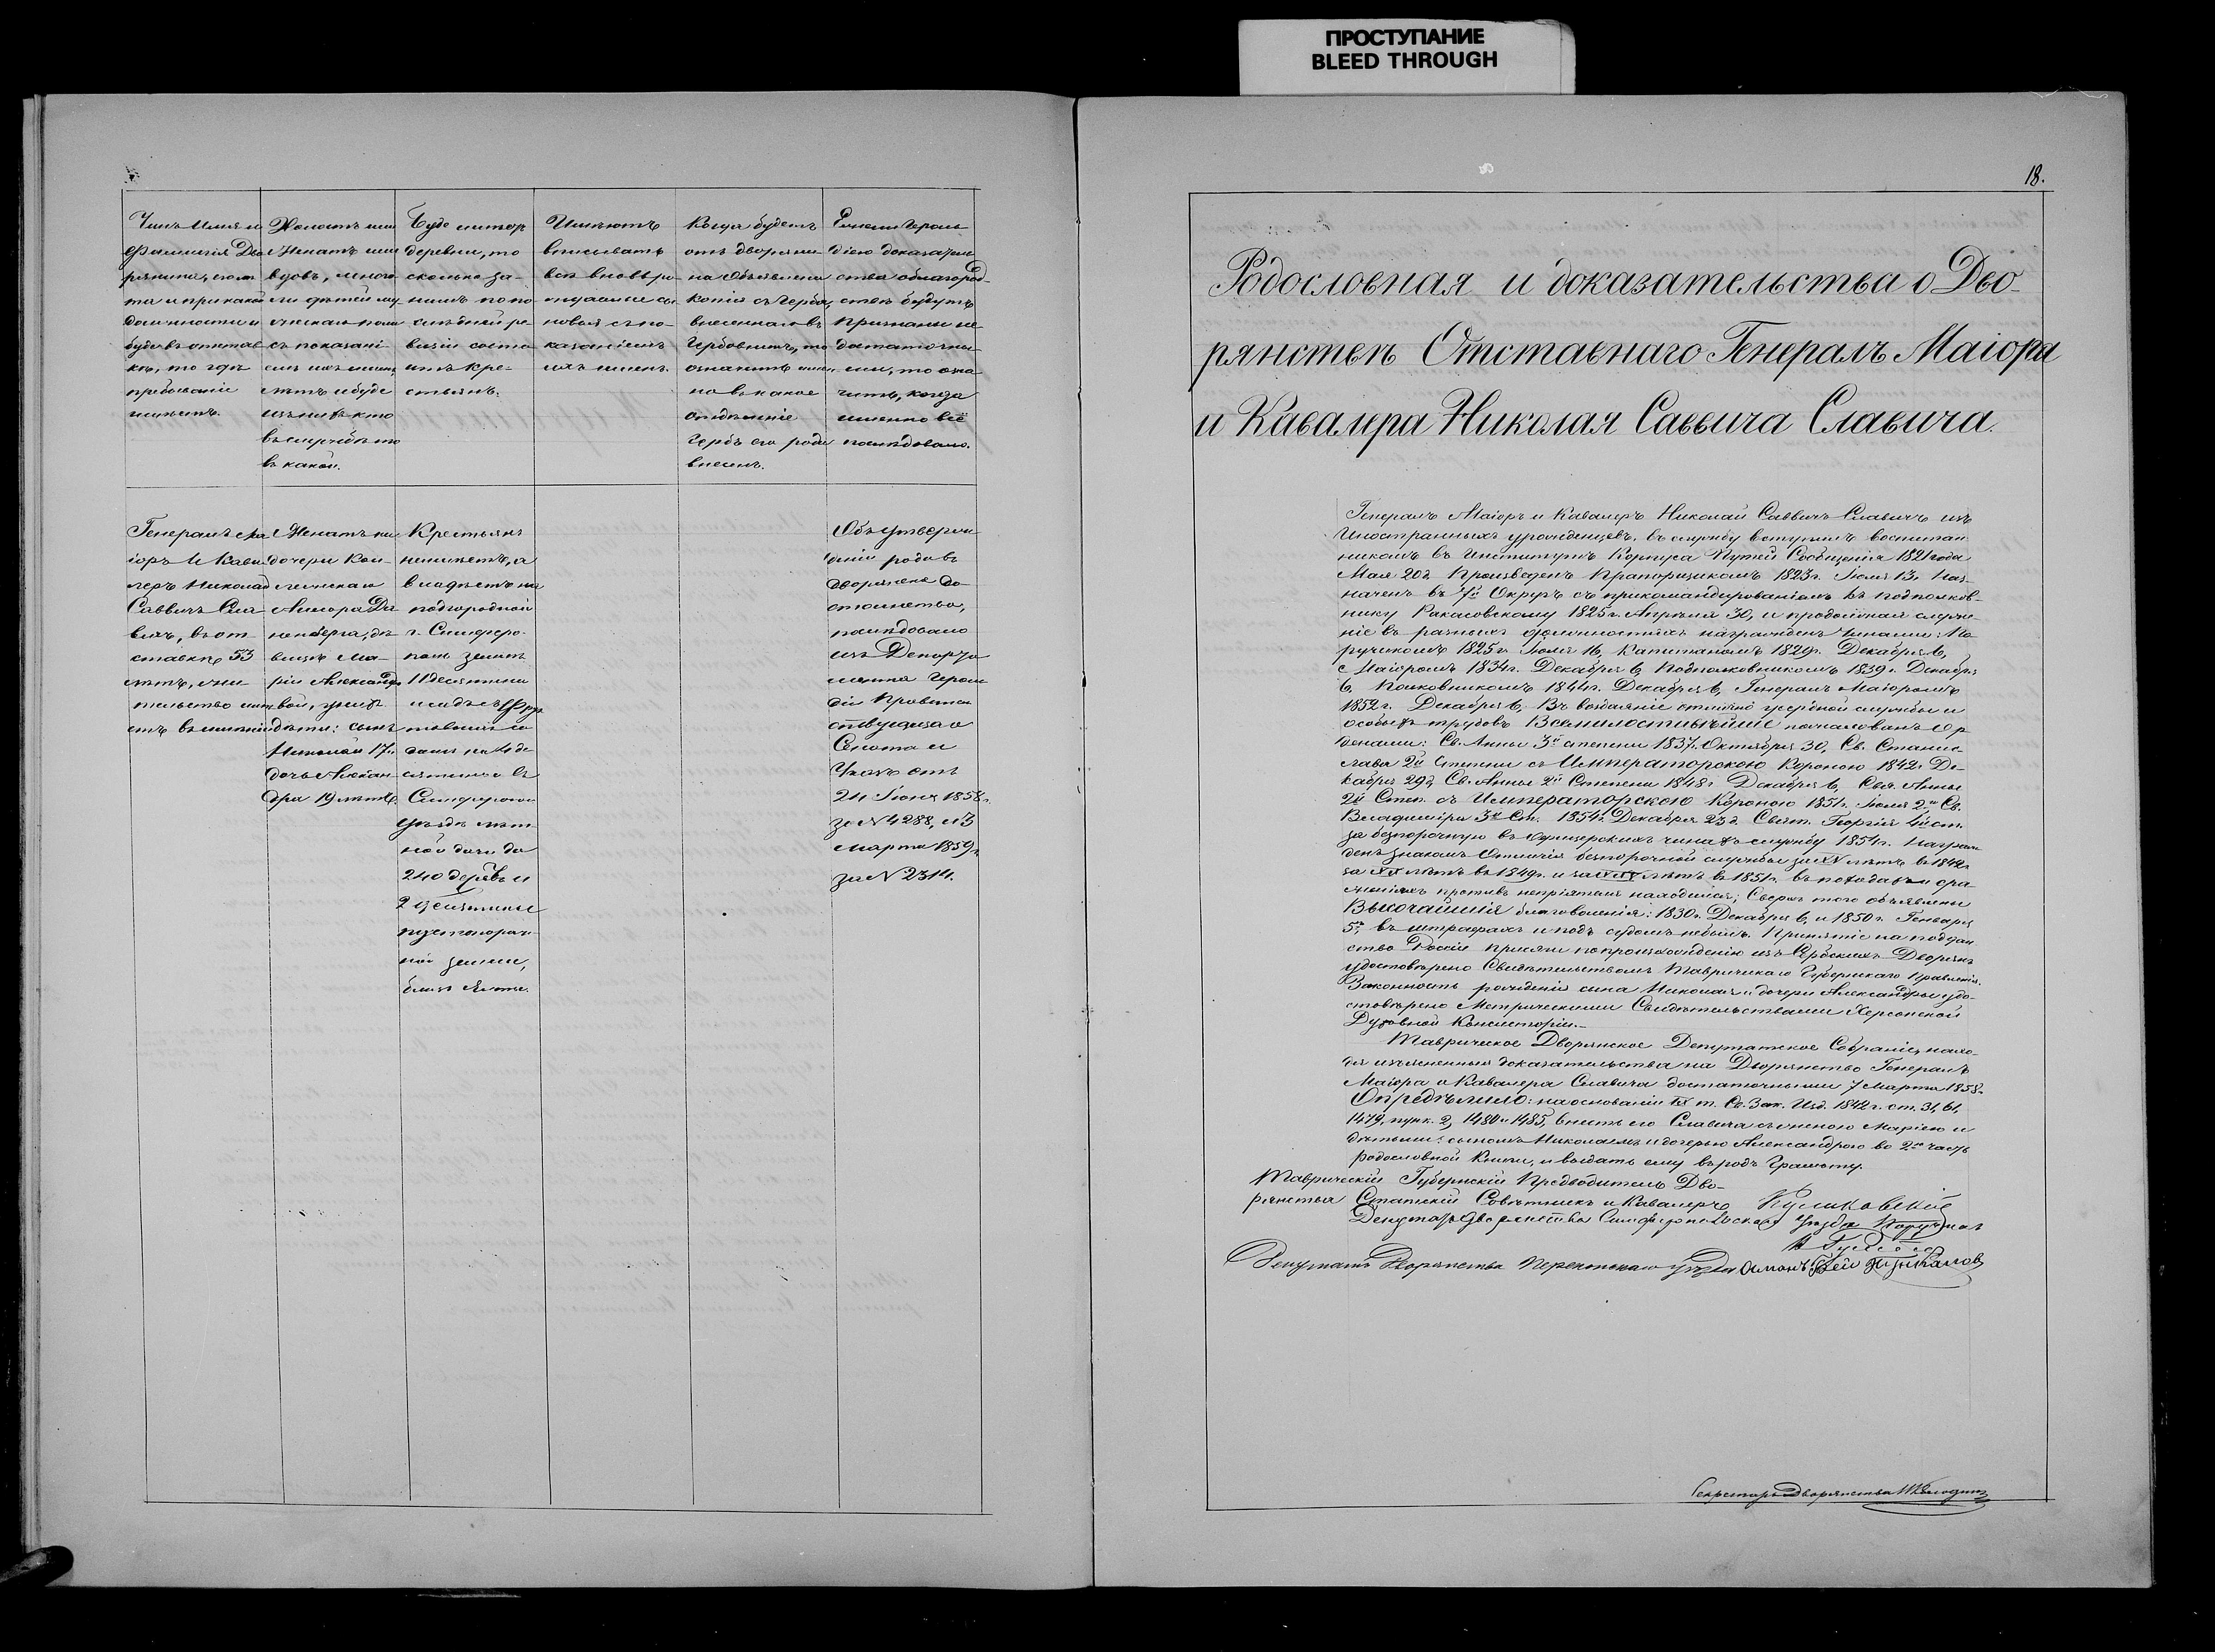 ПРОСТУПАНИЕ
BLEED THROUGH
Чинъ Имя и
Фамилія Дво
рянина, сколь
та и при какой
должности и
буде въ отстав
кѣ, то гдѣ
пребываніе
имѣетъ.
Холостъ или
Женатъ или
вдовъ, много
ли дѣтей му
жеска пола
съ показані
емъ ихъ именъ,
лѣтъ и буде
изъ нихъ кто
въ службѣ то
въ какой.
Буде имѣетъ
деревни, то
сколько за
нимъ по по
слѣдней ре-
визіи состо
итъ кре-
стьянъ.
Имѣютъ
вписывать
всѣ вновь ро-
ждаемые сы
новья съ по-
казаніемъ
ихъ именъ.
Когда будетъ
отъ дворяни-
на объявлена
копія съ герба,
внесеннаго въ
Гербовникъ, то
означить имен,
но въ какое
отдѣленіе
Гербъ его рода
внесенъ.
Ежели Героль
діею доказатель
ства облагород-
ствѣ будутъ
признаны не-
достаточны-
ми, то озна-
чить, когда
именно всё
послѣдовало.
Генералъ Ма
іоръ и Кава
леръ Николай
Саввичъ Сла
вичъ, въ от-
ставкѣ 53
лѣтъ, жи
тельство имѣ
етъ въ имѣніи
Женатъ на
дочери Кол-
лежскаго
Ассесора Да
ненберга, дѣ
вицѣ Ма-
ріи Александр
вой, у нихъ
дѣти: сынъ
Николай 17 и
дочь Алексан
дра 19 лѣтъ.
Крестьянъ
неимѣетъ, а
владѣетъ на
подгородной
г. Симферо-
поль землѣ
11 десятинъ
и садъ съ фрук
товымъ са
домъ на 4 де
сятины въ
Симфероп
уѣздѣ
ной дачи до
240 деревъ и
2 десятины
пустопорож
ной земли,
близъ Ялты.
Объ утверж
деніи рода въ
дворянское до-
стоинство,
послѣдовало
изъ Департа
мента Героль
діи Правитель
ствующаго
Сената
Указъ отъ
24 Іюня 1858 г.
за № 4288, и 3
Марта 1859 г.
за № 2314.
18.
Родословная и доказательства о Дво-
рянствѣ Отставнаго Генералъ Маіора
и Кавалера Николая Саввича Славича.
Генералъ Маіоръ и Кавалеръ Николай Саввичъ Славичъ изъ
Иностранныхъ урожденцевъ, въ службу вступилъ воспитан
никомъ въ Институтъ Корпуса Путей Сообщенія 1821 года
Мая 20 Произведенъ Прапорщикомъ 1823 г. Іюля 13. Наз-
наченъ въ 7й Округъ съ прикомандированіемъ къ подполков-
нику Ракасовскому 1825 г. Апрѣля 30, и продолжая служе-
ніе въ разныхъ должностяхъ награжденъ чинами: По
ручикомъ 1825 г. Іюля 16, Капитаномъ 1829 г. Декабря 6,
Маіоромъ 1834 г. Декабря 6, Подполковникомъ 1839 г. Декабря
6, Полковникомъ 1844 г. Декабря 6, Генералъ Маіоромъ
1852 г. Декабря 6. Въ воздаяніе отлично усердной службы и
особыхъ трудовъ Всемилостивѣйше пожалованъ ор
денами: Св. Анны 3й степени 1837. Октября 30, Св. Станис-
лава 2й Степени съ Императорскою Короною 1842 г. Де-
кабря 29, Св. Анны 2й Степени 1848 г. Декабря 6, Свя. Анны
2й Степ. съ Императорскою Короною 1851 г. Іюля 2го Св.
Владиміра 3й Ст. 1854 г. Декабря 23. Свят. Георгія 4й ст.
за безпорочную въ офицерскихъ чинахъ службу 1854 г. Награж
денъ знакомъ Отличія безпорочной службы за XV лѣтъ въ 1842 г.
за XX лѣтъ въ 1849 г. и за XXV лѣтъ въ 1851 г. въ походахъ и сра
женіяхъ противъ непріятеля находился; Сверхъ того объявлены
Высочайшія благоволенія: 1830 г. Декабря 6 и 1850 г. Генваря
5, въ штрафахъ и подъ судомъ небылъ. Принятіе на поддан
ство Россіи присяги по происхожденію изъ Сербскихъ Дворянъ
удостовѣрено Свидѣтельствомъ Таврическаго Губернскаго Правленія.
Законность рожденія сына Николая и дочери Александры удо-
стовѣрено Метрическими Свидѣтельствами Херсонской
Духовной Консисторіи.
Таврическое Дворянское Депутатское Собраніе, нахо-
дя изъясненныя доказательства на Дворянство Генералъ
Маіора и Кавалера Славича достаточными 7 Марта 1858 г.
Опредѣлило: на основаніи IX т. Св. Зак. Изд. 1842 г. ст. 31, 61,
1479, пунк. 2, 1480 и 1485, внесть его Славича съ женою Маріею и
дѣтьми: сыномъ Николаемъ и дочерью Александрою во 2ю часть
родословной Книги, и выдать ему въ родъ Грамоту.
Таврическій Губернскій Предводитель Дво-
рянства Статскій Совѣтникъ и Кавалеръ Куликовскій
Депутатъ Дворянства Симферопольскаго уѣзда
Депутатъ Дворянства Перекопскаго уѣзда
Секретарь Дворянства